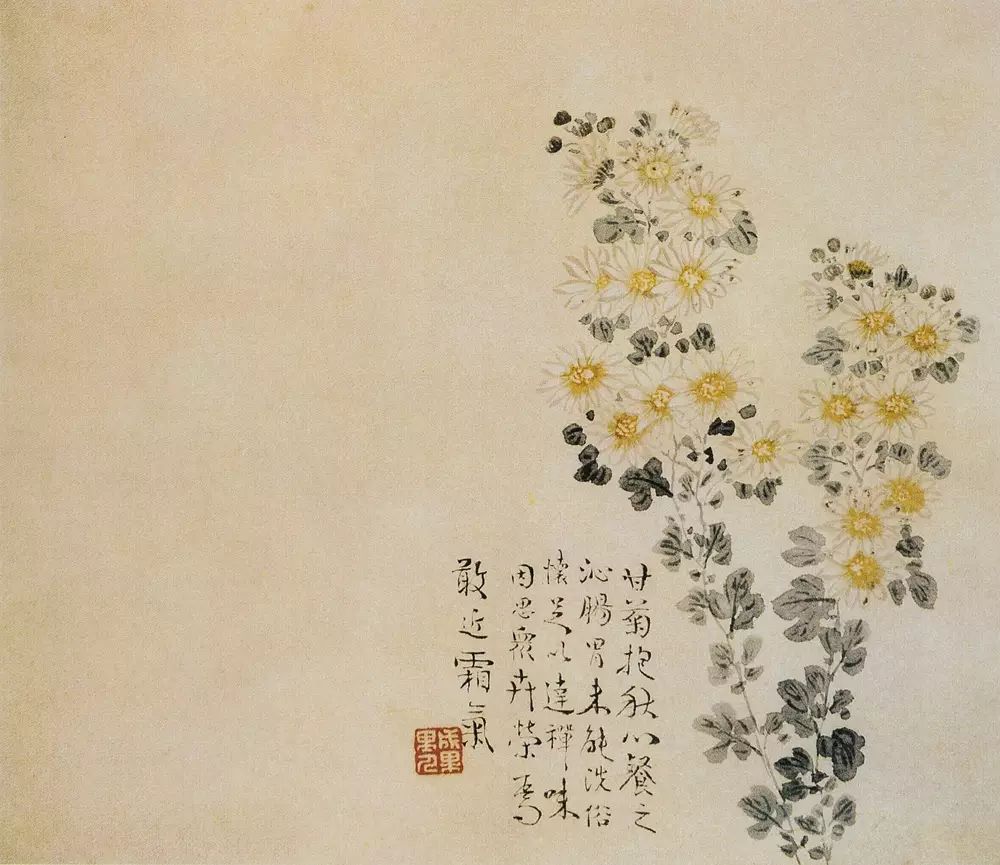 甘菊抱秋心餐之
沁腸胃未能洗俗
懷足以達禪味
因思眾卉榮焉
敢近霜氣